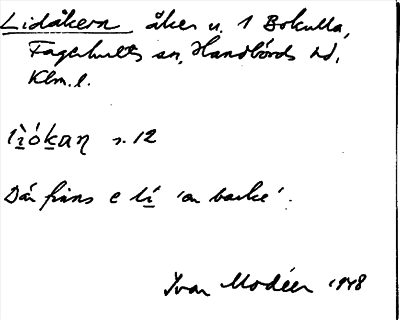 Lidåkern åker u. 1 Bokulla,
Fagerhults sn, Handbörds hd,
Klm. l.
s. 12
Där finns e lí 'en backe'.
Ivar Modéer 1948